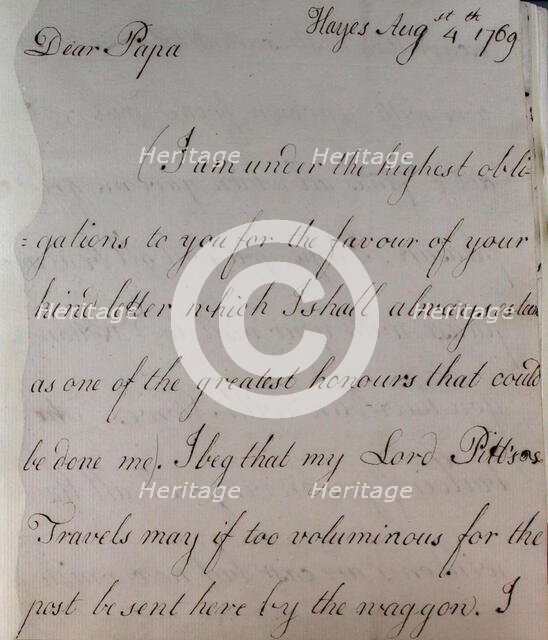 Hayes Augst 4th 1769
Dear Papa
(I am under the highest obli
=gations to you for the favour of your
kind letter which I shall always esteem
as one of the greatest honours that could
be done me). I beg that my Lord Pitt's
Travels may if too voluminous for the
post be sent here by the waggon. I
Heritage Heritage
Heritage Heritage
Heritage Heritage
Heritage Heritage